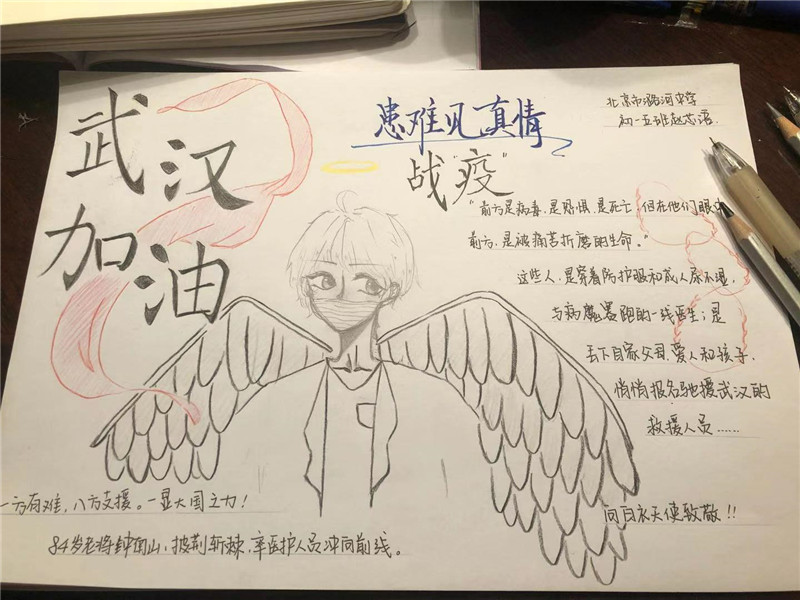 武汉
加油
患难见真情
战"疫"
北京市潞河中学
初一五班赵芯语
"前方是病毒,是恐惧,是死亡,但在他们眼中
前方,是被痛苦折磨的生命。"
这些人,是穿着防护服和成人尿不湿,
与病魔赛跑的一线医生;是
丢下自家父母,爱人和孩子,
悄悄报名驰援武汉的
救援人员……
向白衣天使致敬!!
一方有难,八方支援。一显大国之力!
84岁老将钟南山,披荆斩棘,率医护人员冲向前线。